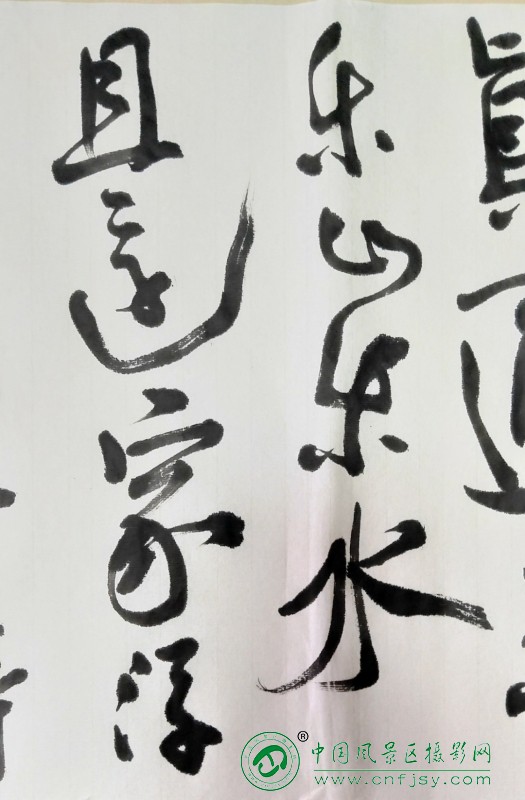 眞
乐山乐水
且還家浮
中国风景区摄影网
www.cnfjsy.com
®